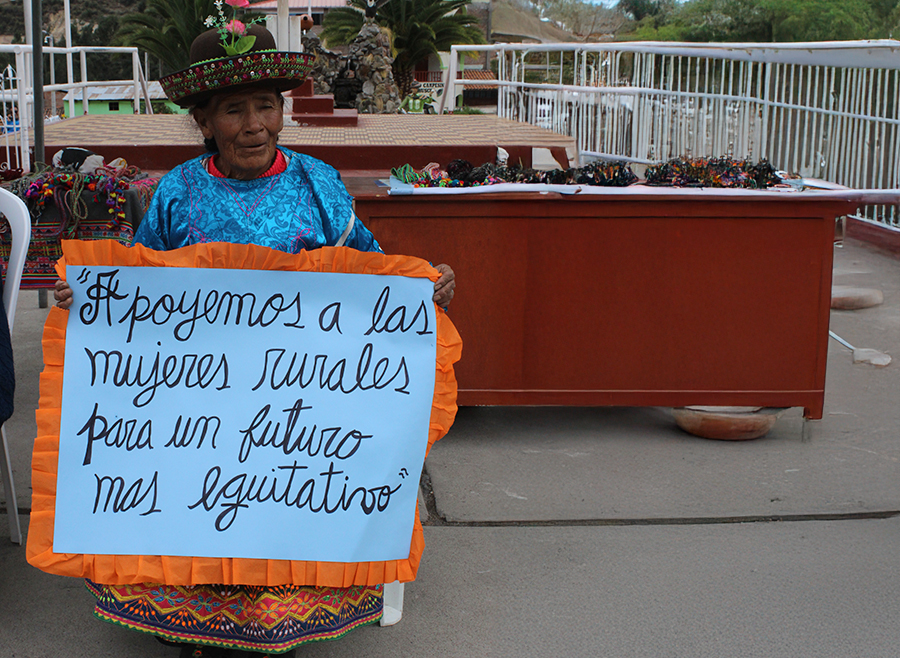 "Apoyemos a las
mujeres rurales
para un futuro
mas equitativo"